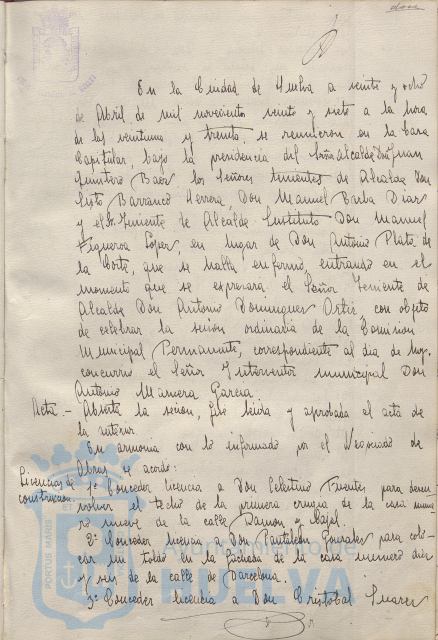 doce
En la Ciudad de Huelva a veinte y ocho
de Abril de mil novecientos veinte y siete a la hora
de las veintiuna y treinta, se reunieron en la Casa
Capitular, bajo la presidencia del Señor Alcalde Don Juan
Quintero Baez los Señores tenientes de Alcalde Don
Sixto Barranco Herrera, Don Manuel Barba Diaz
y el Sr. Teniente de Alcalde Sustituto Don Manuel
Figueroa Lopez, en lugar de Don Antonio Plata de
la Corte, que se halla enfermo, entrando en el
momento que se expresara el Señor Teniente de
Alcalde Don Antonio Dominguez Ortiz, con objeto
de celebrar la sesion ordinaria de la Comision
Municipal Permanente, correspondiente al dia de hoy.
concurrio el Señor Interventor municipal Don
Antonio Garcia
Acta.- Abierta la sesion, fue leida y aprobada el acta de
la anterior.
En armonia con lo informado por el Negociado de
Obras se acordó:
Licencias de construccion
1º Conceder licencia a Don Celestino Fuentes para desen-
volver el techo de la primera crugia de la casa nume-
ro nueve de la calle Ramon y Cajal.
2º Conceder licencia a Don Pantaleón Gonzalez para colo-
car un toldo en la fachada de la casa numero diez
y seis de la calle de Barcelona.
3º Conceder licencia a Don Cristobal Suarez
PORTUS MARIS ET
Ayuntamiento de
HUELVA